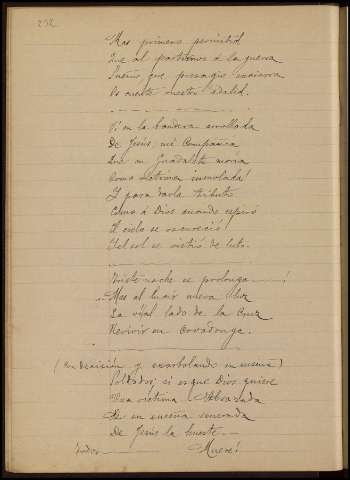 232
Mas primero permitid
Que al partirnos á la guerra
Sueños que presagio encierra
Os cuente vuestro adalid.
Vi en la bandera arrollada
De Jesús, mi Compañía
Que en Guadalete moría
Como víctima inmolada!
Y para darla tributo
Como á Dios cuando espiró
El cielo se oscureció
Y el sol se vistió de luto.
Triste noche se prolonga !
Mas al lucir nueva luz
La vi al lado de la Cruz
Revivir en Covadonga.
(Con decisión y enarbolando su enseña)
Soldados; si es que Dios quiere
Una víctima
De su enseña venerada
De Jesús la hueste.
Todos Muere!